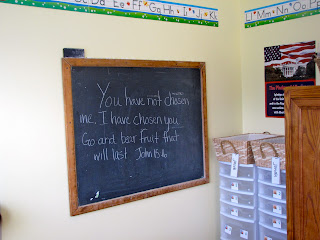 Dd Ee Ff Gg Hh Ii Jj Kk
Ll Mm Nn Oo Pp
You have not chosen
me, I have chosen you.
Go and bear fruit that
will last John 15:16